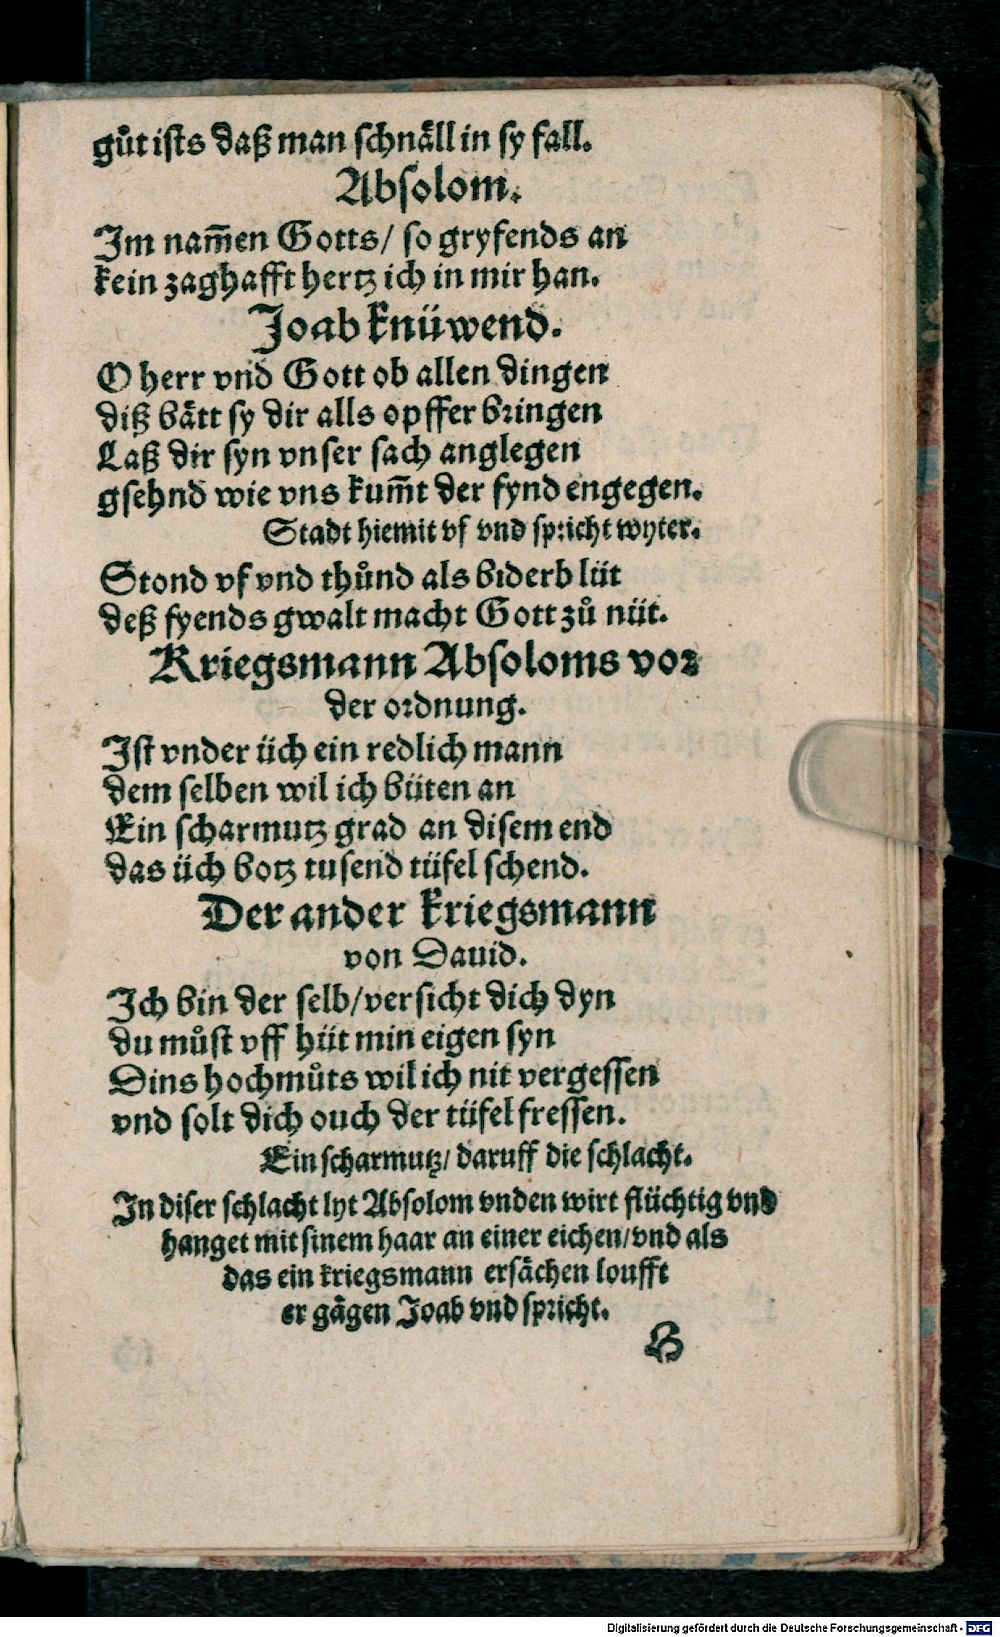 gůt ists daß man schnäll in sy fall.
Absolom.
Im nam̄en Gotts/ so gryfends an
kein zaghafft hertz ich in mir han.
Joab knüwend.
O herr vnd Gott ob allen dingen
diß bätt sy dir alls opffer bringen
Laß dir syn vnser sach anglegen
gsehnd wie vns kum̄t der fynd engegen.
Stadt hiemit vf vnd spricht wyter.
Stond vf vnd thůnd als biderb lüt
deß fyends gwalt macht Gott zů nüt.
Kriegsmann Absoloms vor
der ordnung.
Ist vnder üch ein redlich mann
dem selben wil ich büten an
Ein scharmutz grad an disem end
das üch botz tusend tüfel schend.
Der ander kriegsmann
von Dauid.
Ich bin der selb/versicht dich dyn
du můst vff hüt min eigen syn
Dins hochmůts wil ich nit vergessen
vnd solt dich ouch der tüfel fressen.
Ein scharmutz/ daruff die schlacht.
In diser schlacht lyt Absolom vnden wirt flüchtig vnd
hanget mit sinem haar an einer eichen/vnd als
das ein kriegsmann ersächen loufft
er gägen Joab vnd spricht.
B
Digitalisierung gefördert durch die Deutsche Forschungsgemeinschaft - DFG